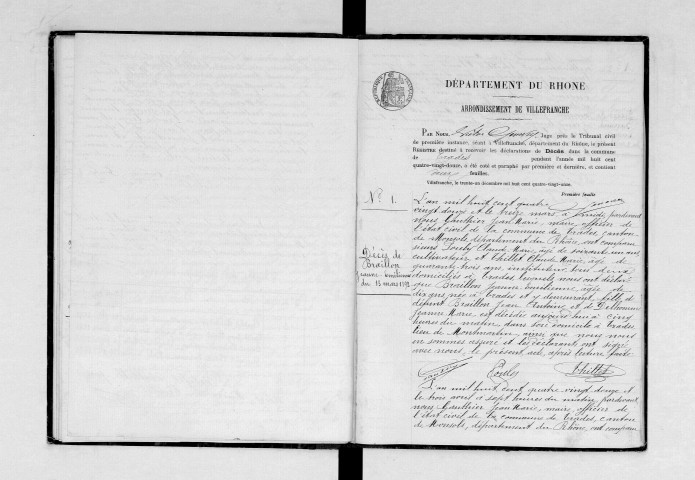 DÉPARTEMENT DU RHONE
ARRONDISSEMENT DE VILLEFRANCHE
PAR NOUS, Juge près le Tribunal civil
de première instance, séant à Villefranche, département du Rhône, le présent
REGISTRE destiné à recevoir les déclarations de Décès dans la commune
de Trades pendant l'année mil huit cent
quatre-vingt-douze, a été coté et paraphé par première et dernière, et contient
feuilles.
Villefranche, le trente-un décembre mil huit cent quatre-vingt-onze.
Première feuille
N.° 1.
Décès de
Braillon
Jeanne-Emilienne
du 13 mars 1892
L'an mil huit cent quatre
vingt douze et le treize mars, à midi, pardevant
nous Gauthier Jean Marie, maire, officier de
l'état civil de la commune de Trades, canton
de Monsols, département du Rhône, ont comparu
sieurs Claude Marie, âgé de soixante un ans
cultivateur, et Thillet Claude Marie, âgé de
quarante trois ans, instituteur, tous deux
domiciliés à Trades, lesquels nous ont déclaré
que Braillon Jeanne Emilienne, âgée de
dix ans, née à Trades et y demeurant, fille de
défunt Braillon Jean Antoine et de
Jeanne Marie, est décédée aujourd'hui à cinq
heures du matin, dans son domicile à Trades
lieu de Montmartin, ainsi que nous nous
en sommes assuré et les déclarants ont signé
avec nous, le présent acte, après lecture faite.
Thillet
L'an mil huit cent quatre vingt douze et
le trois avril à sept heures du matin, pardevant
nous Gauthier Jean Marie, maire, officier de
l'état civil de la commune de Trades, canton
de Monsols, département du Rhône, ont comparu